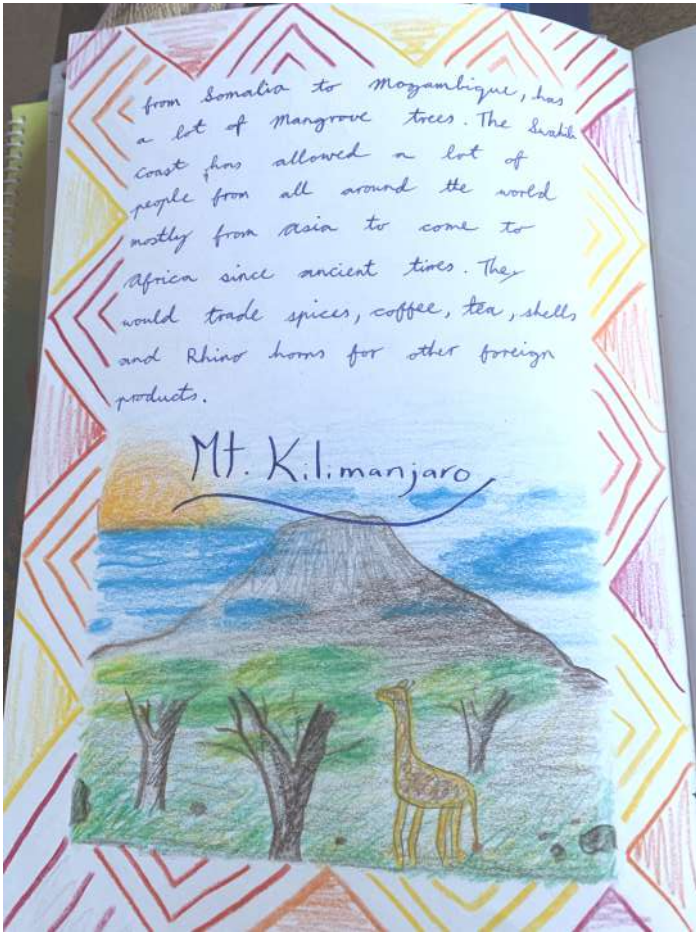 from Somalia to Mozambique, has
a lot of Mangrove trees. The Swahili
coast, has allowed a lot of
people from all around the world
mostly from asia to come to
Africa since ancient times. They
would trade spices, coffee, tea, shells
and Rhino horns for other foreign
products.
Mt. Kilimanjaro